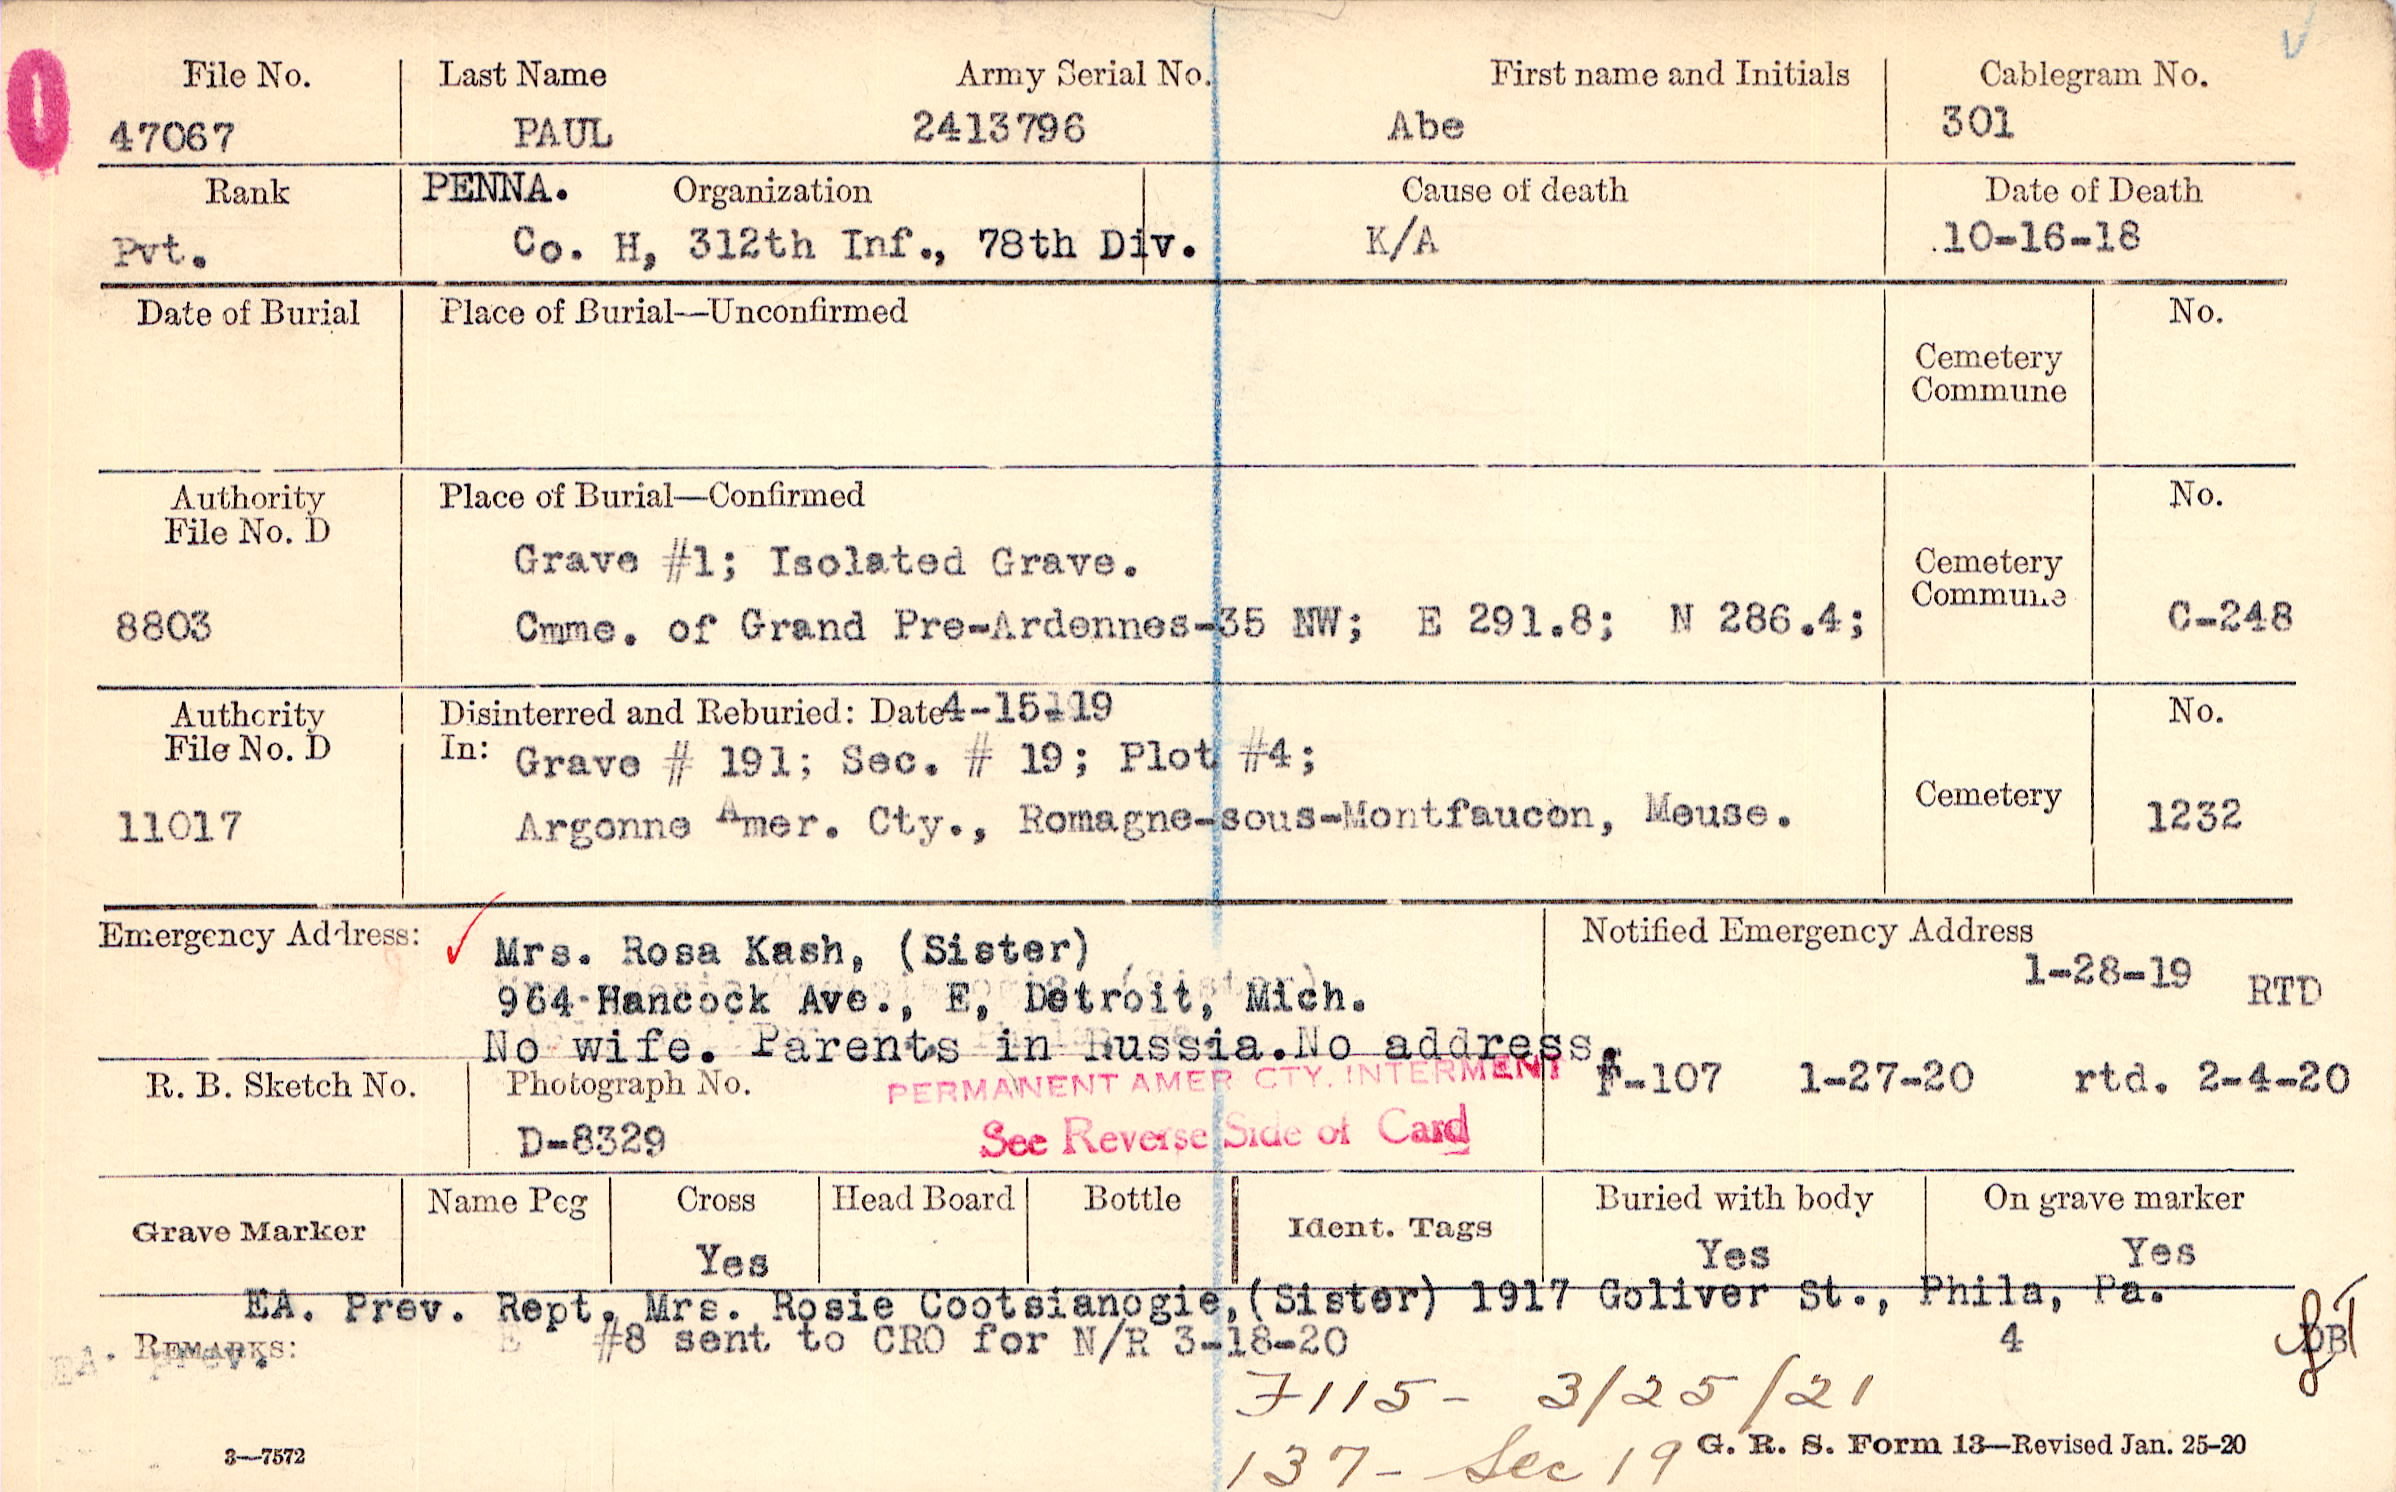 File No. Last Name Army Serial No. First name and Initials Cablegram No.
47067 PAUL 2413796 Abe 301
Rank PENNA. Organization Cause of death Date of Death
Pvt. Co. H, 312th Inf., 78th Div. K/A 10-16-18
Date of Burial Place of Burial—Unconfirmed No.
Cemetery
Commune
Authority Place of Burial—Confirmed No.
File No. D
Grave #1; Isolated Grave. Cemetery
Commune
8803 Cmme. of Grand Pre-Ardennes-35 NW; E 291.8; N 286.4; C-248
Authority Disinterred and Reburied: Date 4-15-19 No.
File No. D In: Grave # 191; Sec. # 19; Plot #4;
Cemetery
11017 Argonne Amer. Cty., Romagne-sous-Montfaucon, Meuse. 1232
Emergency Address: Mrs. Rosa Kash, (Sister) Notified Emergency Address
964 Hancock Ave., E, Detroit, Mich. 1-28-19 RTD
No wife. Parents in Russia. No address.
R. B. Sketch No. Photograph No. PERMANENT AMER CTY. INTERMENT F-107 1-27-20 rtd. 2-4-20
D-8329 See Reverse Side of Card
Grave Marker Name Peg Cross Head Board Bottle Ident. Tags Buried with body On grave marker
Yes Yes Yes
EA. Prev. Rept. Mrs. Rosie Cootsianogie, (Sister) 1917 Goliver St., Phila, Pa.
REMARKS: E #8 sent to CRO for N/R 3-18-20 4 DB
EA. Prev.
F115 - 3/25/21
137 - Sec 19
3—7572 G. R. S. Form 13—Revised Jan. 25-20